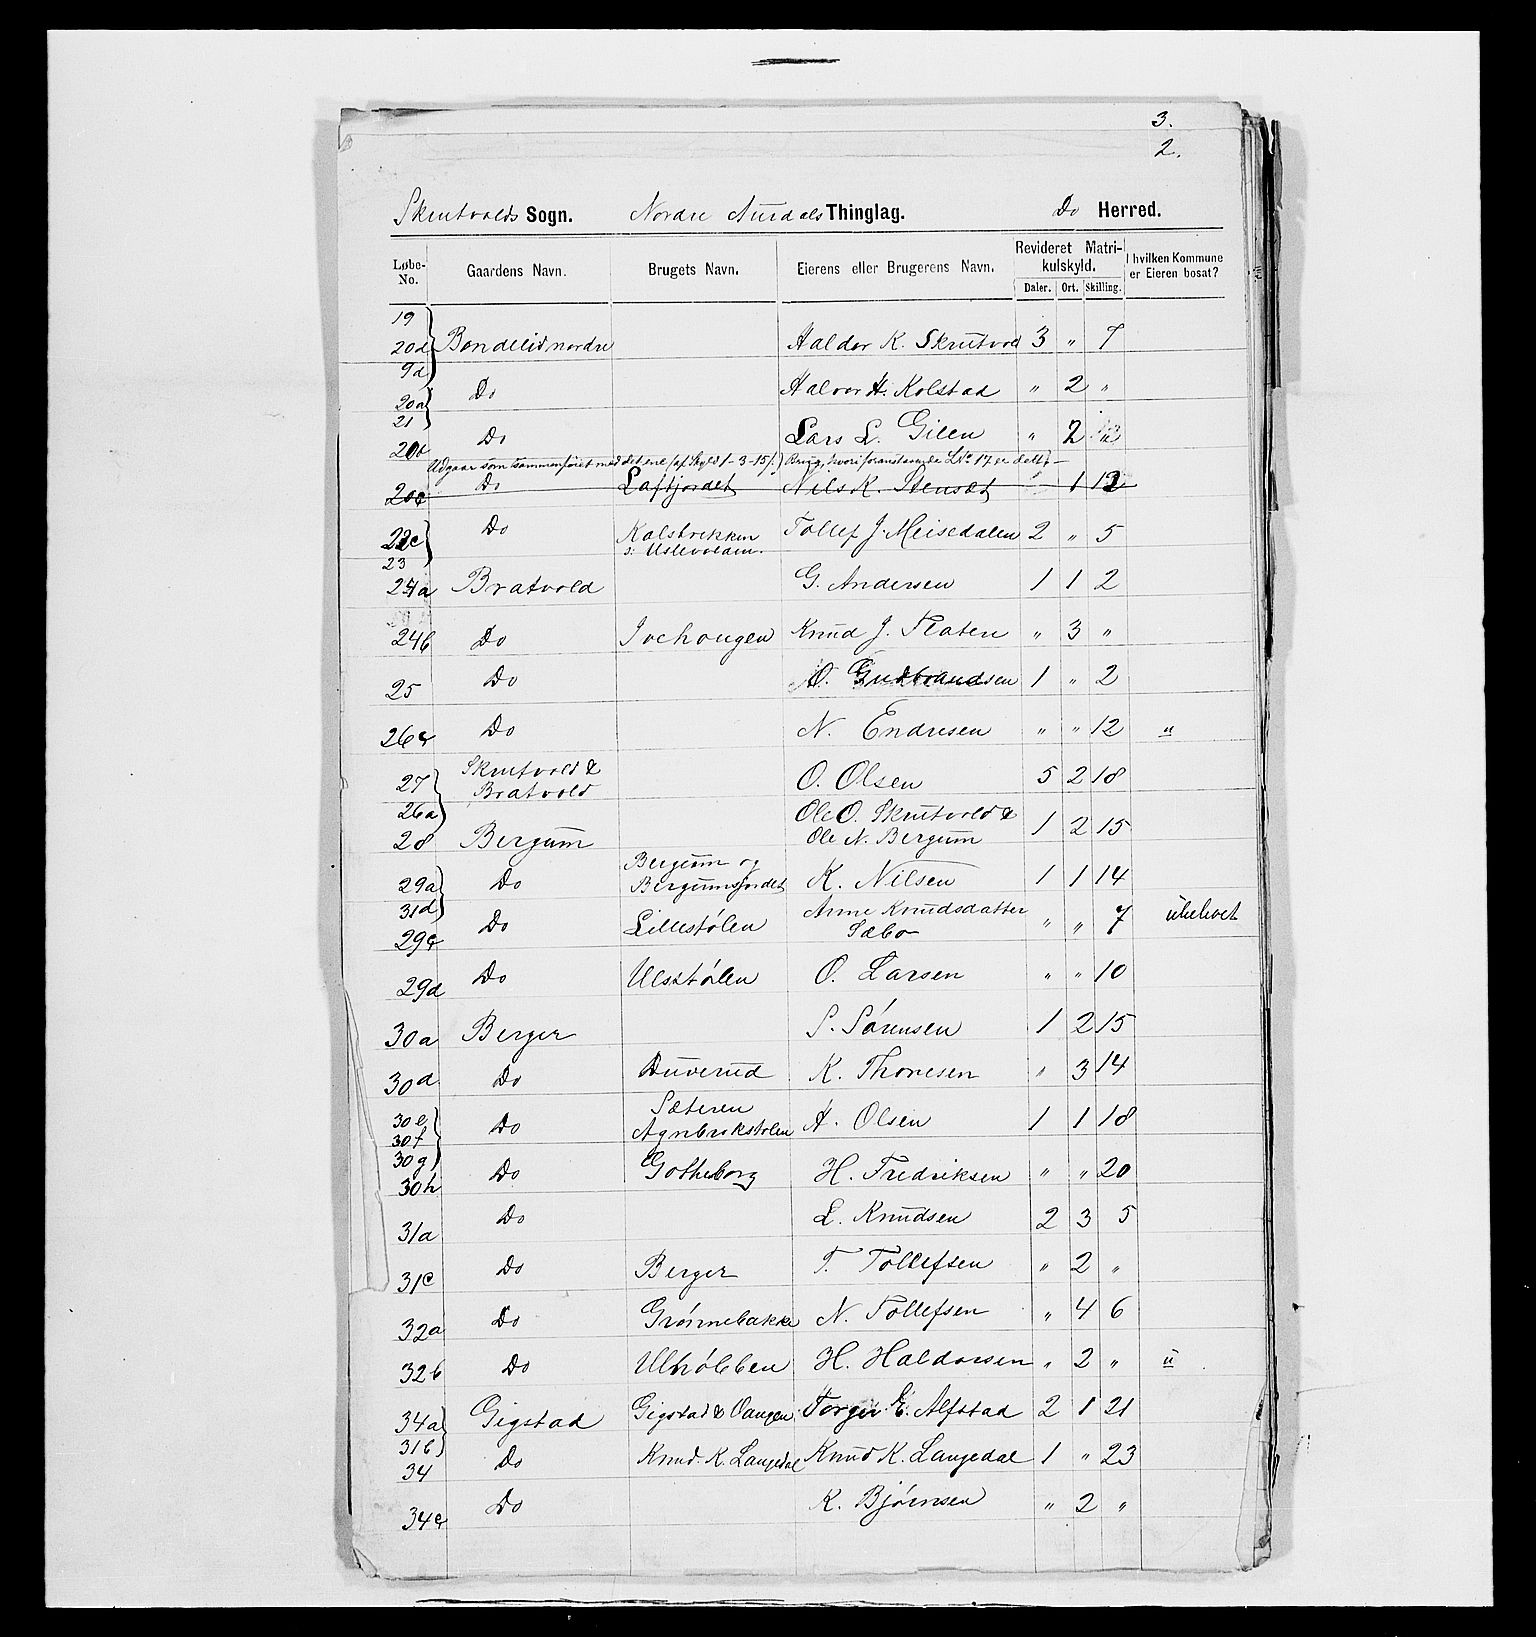 3.
2.
Skrutvolds Sogn. Nordre Aurdals Thinglag. Do Herred.
Løbe-No. Gaardens Navn. Brugets Navn. Eierens eller Brugerens Navn. Revideret Matrikulskyld. I hvilken Kommune er Eieren bosat?
Daler. Ort. Skilling.
19
20d Bondelid nordre Haldor K. Skrutvold 3 " 7
9d
20a Do Halvor H. Kolstad " 2 "
21
20b Do Lars L. Gilen " 2
Udgaar som sammenføiet med det ene (af Skyld 1-3-15/.) Brug, hvori foranstaaende LNo 17 er delt
20c Do Løftjordet Nils K. Stensæt " 1 12
22c Do Kalsbrekken Tollef J. Meisedalen 2 " 5
s: Uslevolden.
23
24a Bratvold G. Andersen 1 1 2
24b Do Ivehougen Knud J. Flaten " 3 "
25 Do O. Gudbrandsen 1 " 2
26c Do N. Endresen " " 12 "
27 Skrutvold & Bratvold O. Olsen 5 2 18
26a Ole O. Skrutvold &
28 Bergum Ole N. Bergum 1 2 15
29a Do Bergum og Bergumsjordet K. Nilsen 1 1 14
31d Anne Knudsdatter
29c Do Lillestølen Sæbo " " 7 ubeboet
29d Do Ulsstølen O. Larsen " " 10
30a Berger S. Sørensen 1 2 15
30d Do Duverud K. Thoresen " 3 14
30e Sæteren
30f Do Agnbrekstølen A. Olsen 1 1 18
30g
30h Do Gotheborg H. Fredriksen " " 20
31a Do L. Knudsen 2 3 5
31c Do Berger T. Tollefsen " 2 "
32a Do Grønnebakke N. Tollefsen " 4 6
32b Do Ulhøbben H. Haldorsen " 2 " "
34a Gigstad Gigstad & Vangen Torger E. Alfstad 2 1 21
31b
34 Do Knud K. Langedal Knud K. Langedal 1 " 23
34c Do K. Bjørnsen " 2 "